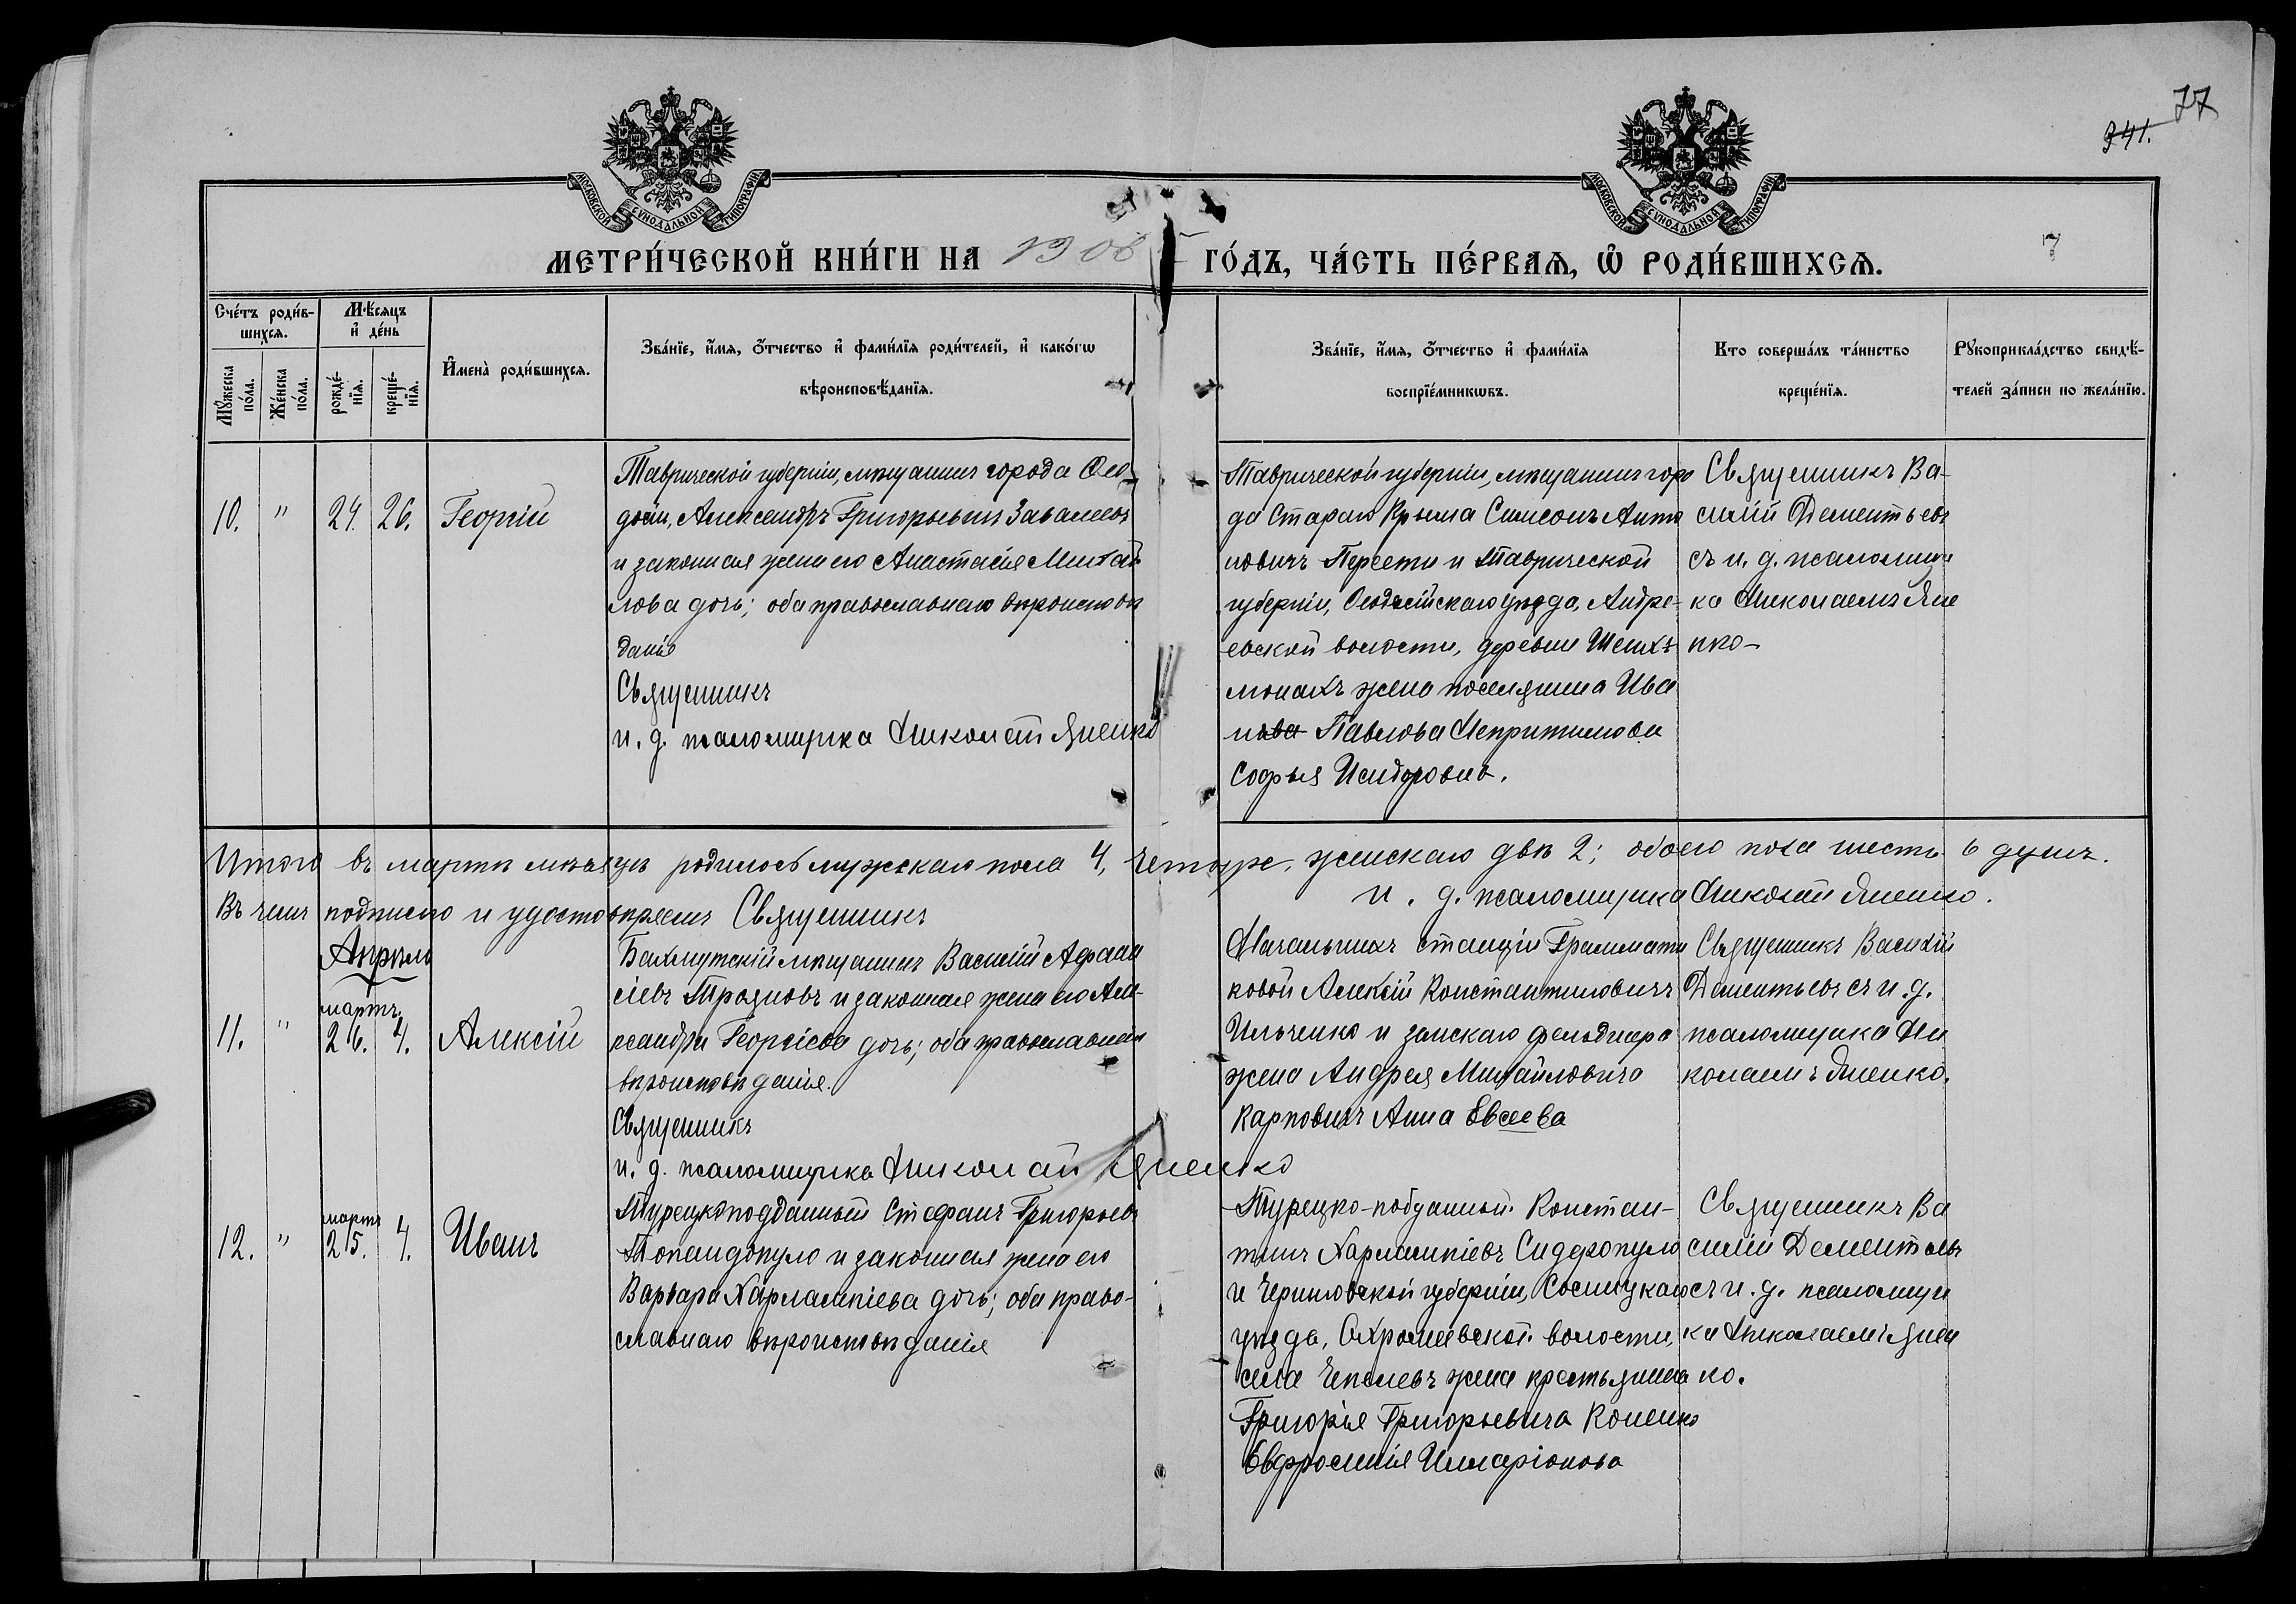 77
341.
МОСКОВСКОЙ СѴНОДАЛЬНОЙ ТИПОГРАФІИ
МОСКОВСКОЙ СѴНОДАЛЬНОЙ ТИПОГРАФІИ
МЕТРИ́ЧЕСКОЙ КНИ́ГИ НА 1908 ГО́ДЪ, ЧА́СТЬ ПЕ́РВАЯ, Ѡ РОДИ́ВШИХСЯ.
7
Сче́тъ роди́в-
шихся.
Мѣ́сяцъ
и҆ де́нь
Мꙋ́жеска
по́ла.
Же́нска
по́ла.
рожде́-
нїя.
креще́-
нїя.
И҆мена̀ роди́вшихся.
Зва́нїе, и҆́мя, ѻ҆́тчество и҆ фами́лїя роди́телей, и҆ како́гѡ
вѣроисповѣ́данїя.
Зва́нїе, и҆́мя, ѻ҆́тчество и҆ фами́лїя
воспрїе́мникѡвъ.
Кто соверша́лъ та́инство
креще́нїя.
Рꙋкоприкла́дство свидѣ́-
телей за́писи по жела́нїю.
10. " 24. 26. Георгій
Таврической губерніи, мѣщанинъ города Ѳео-
досіи, Александръ Григорьевъ
и законная жена его Анастасія Михай-
лова дочь; оба православнаго вѣроисповѣ
данія
Священникъ
и. д. псаломщика Николай Яненко
Таврической губерніи, мѣщанинъ горо
да Стараго Крыма Симеонъ Анто
новичъ и Таврической
губерніи, Ѳеодосійскаго уѣзда, Андре-
евской волости, деревни Шейхъ-
монахъ жена поселянина Ива
нова Павлова
Софья Исидорова.
Священникъ Ва-
силій Дементьевъ
съ и. д. псаломщи
ка Николаемъ Яне
нко-
Итого въ мартѣ мѣсяцѣ родилось мужскаго пола 4, четыре, женскаго двѣ 2; обоего пола шесть 6 душъ.
и. д. псаломщика Николай Яненко.
Въ чемъ подписью и удостовѣряемъ Священникъ
Апрѣль
11. " мартъ. 26. 4. Алексій
Бахмутскій мѣщанинъ Василій Афана
сіевъ и законная жена его Але-
ксандра Георгіева дочь; оба православнаго
вѣроисповѣданія.
Священникъ
и. д. псаломщика Николай Яненко
Начальникъ станціи Граммати
ковой Алексій Константиновичъ
Ильченко и земскаго фельдшера
жена Андрея Михайловича
Карповичъ Анна Евсеева
Священникъ Василій
Дементьевъ съ и. д.
псаломщика Ни
колаемъ Яненко.
12. " мартъ 25. 4. Иванъ
Турецкоподданный Стефанъ Григорьевъ
Топалидопуло и законная жена его
Варвара Харлампіева дочь; оба право-
славнаго вѣроисповѣданія
Турецко-подданный Констан-
тинъ Харлампіевъ Сидеропуло
и Черниговской губерніи, Сосницкаго
уѣзда, Охрамѣевской волости,
села жена крестьянина
Григорія Григорьевича
Евфросинія Илларіонова
Священникъ Ва
силій Дементьевъ
съ и. д. псаломщи
ка Николаемъ Янен
ко.